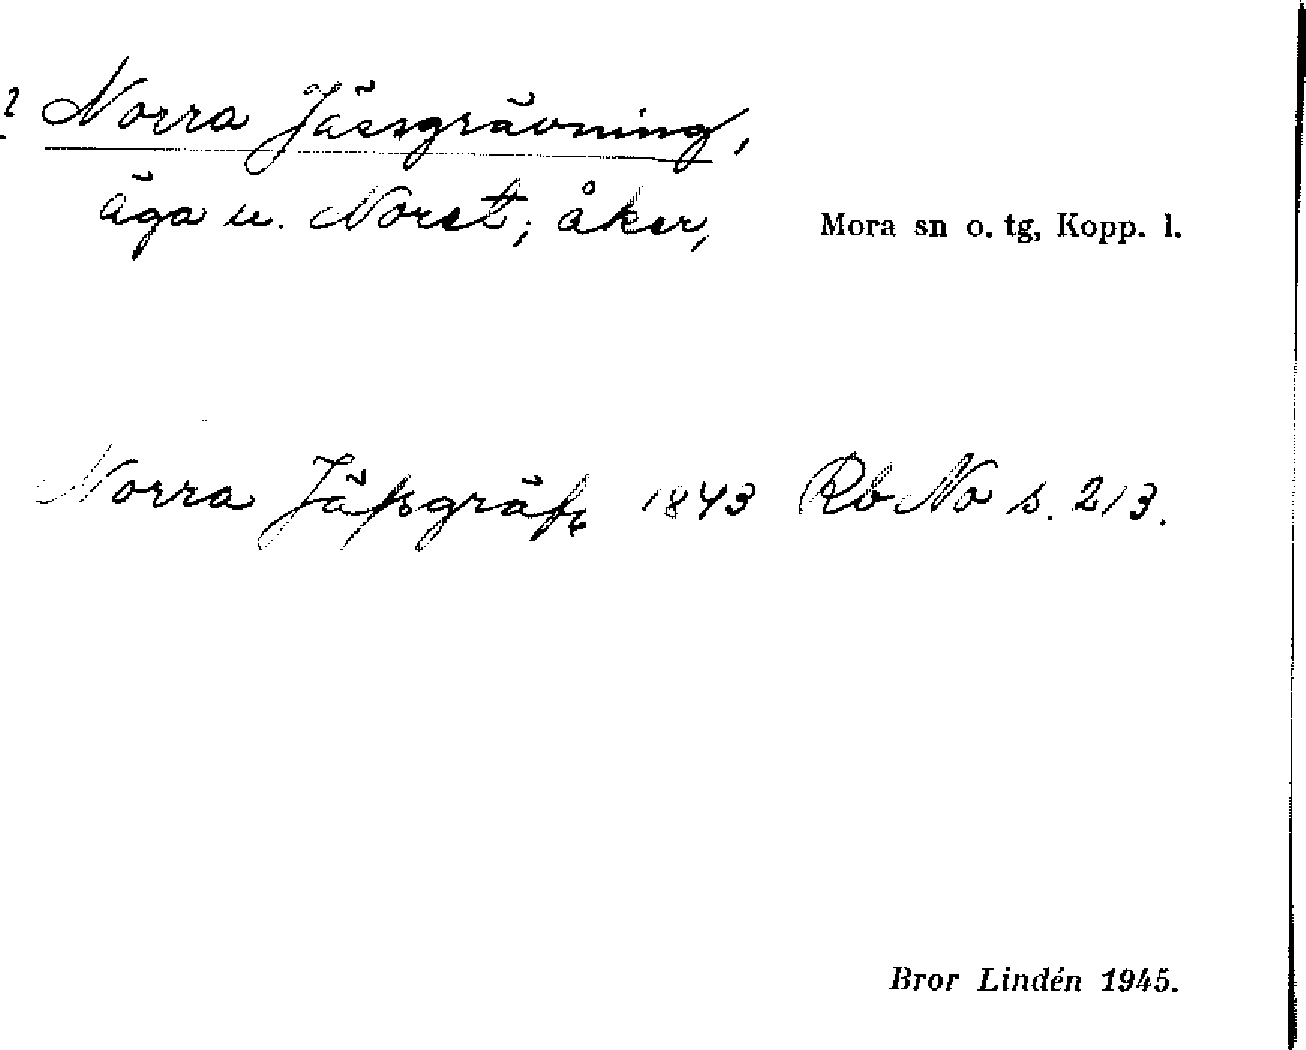 ? Norra Jässgrävning,
äga u. Noret; åker, Mora sn o. tg, Kopp. l.
Norra Jäſsgräfn 1843 Rb No s. 213.
Bror Lindén 1945.